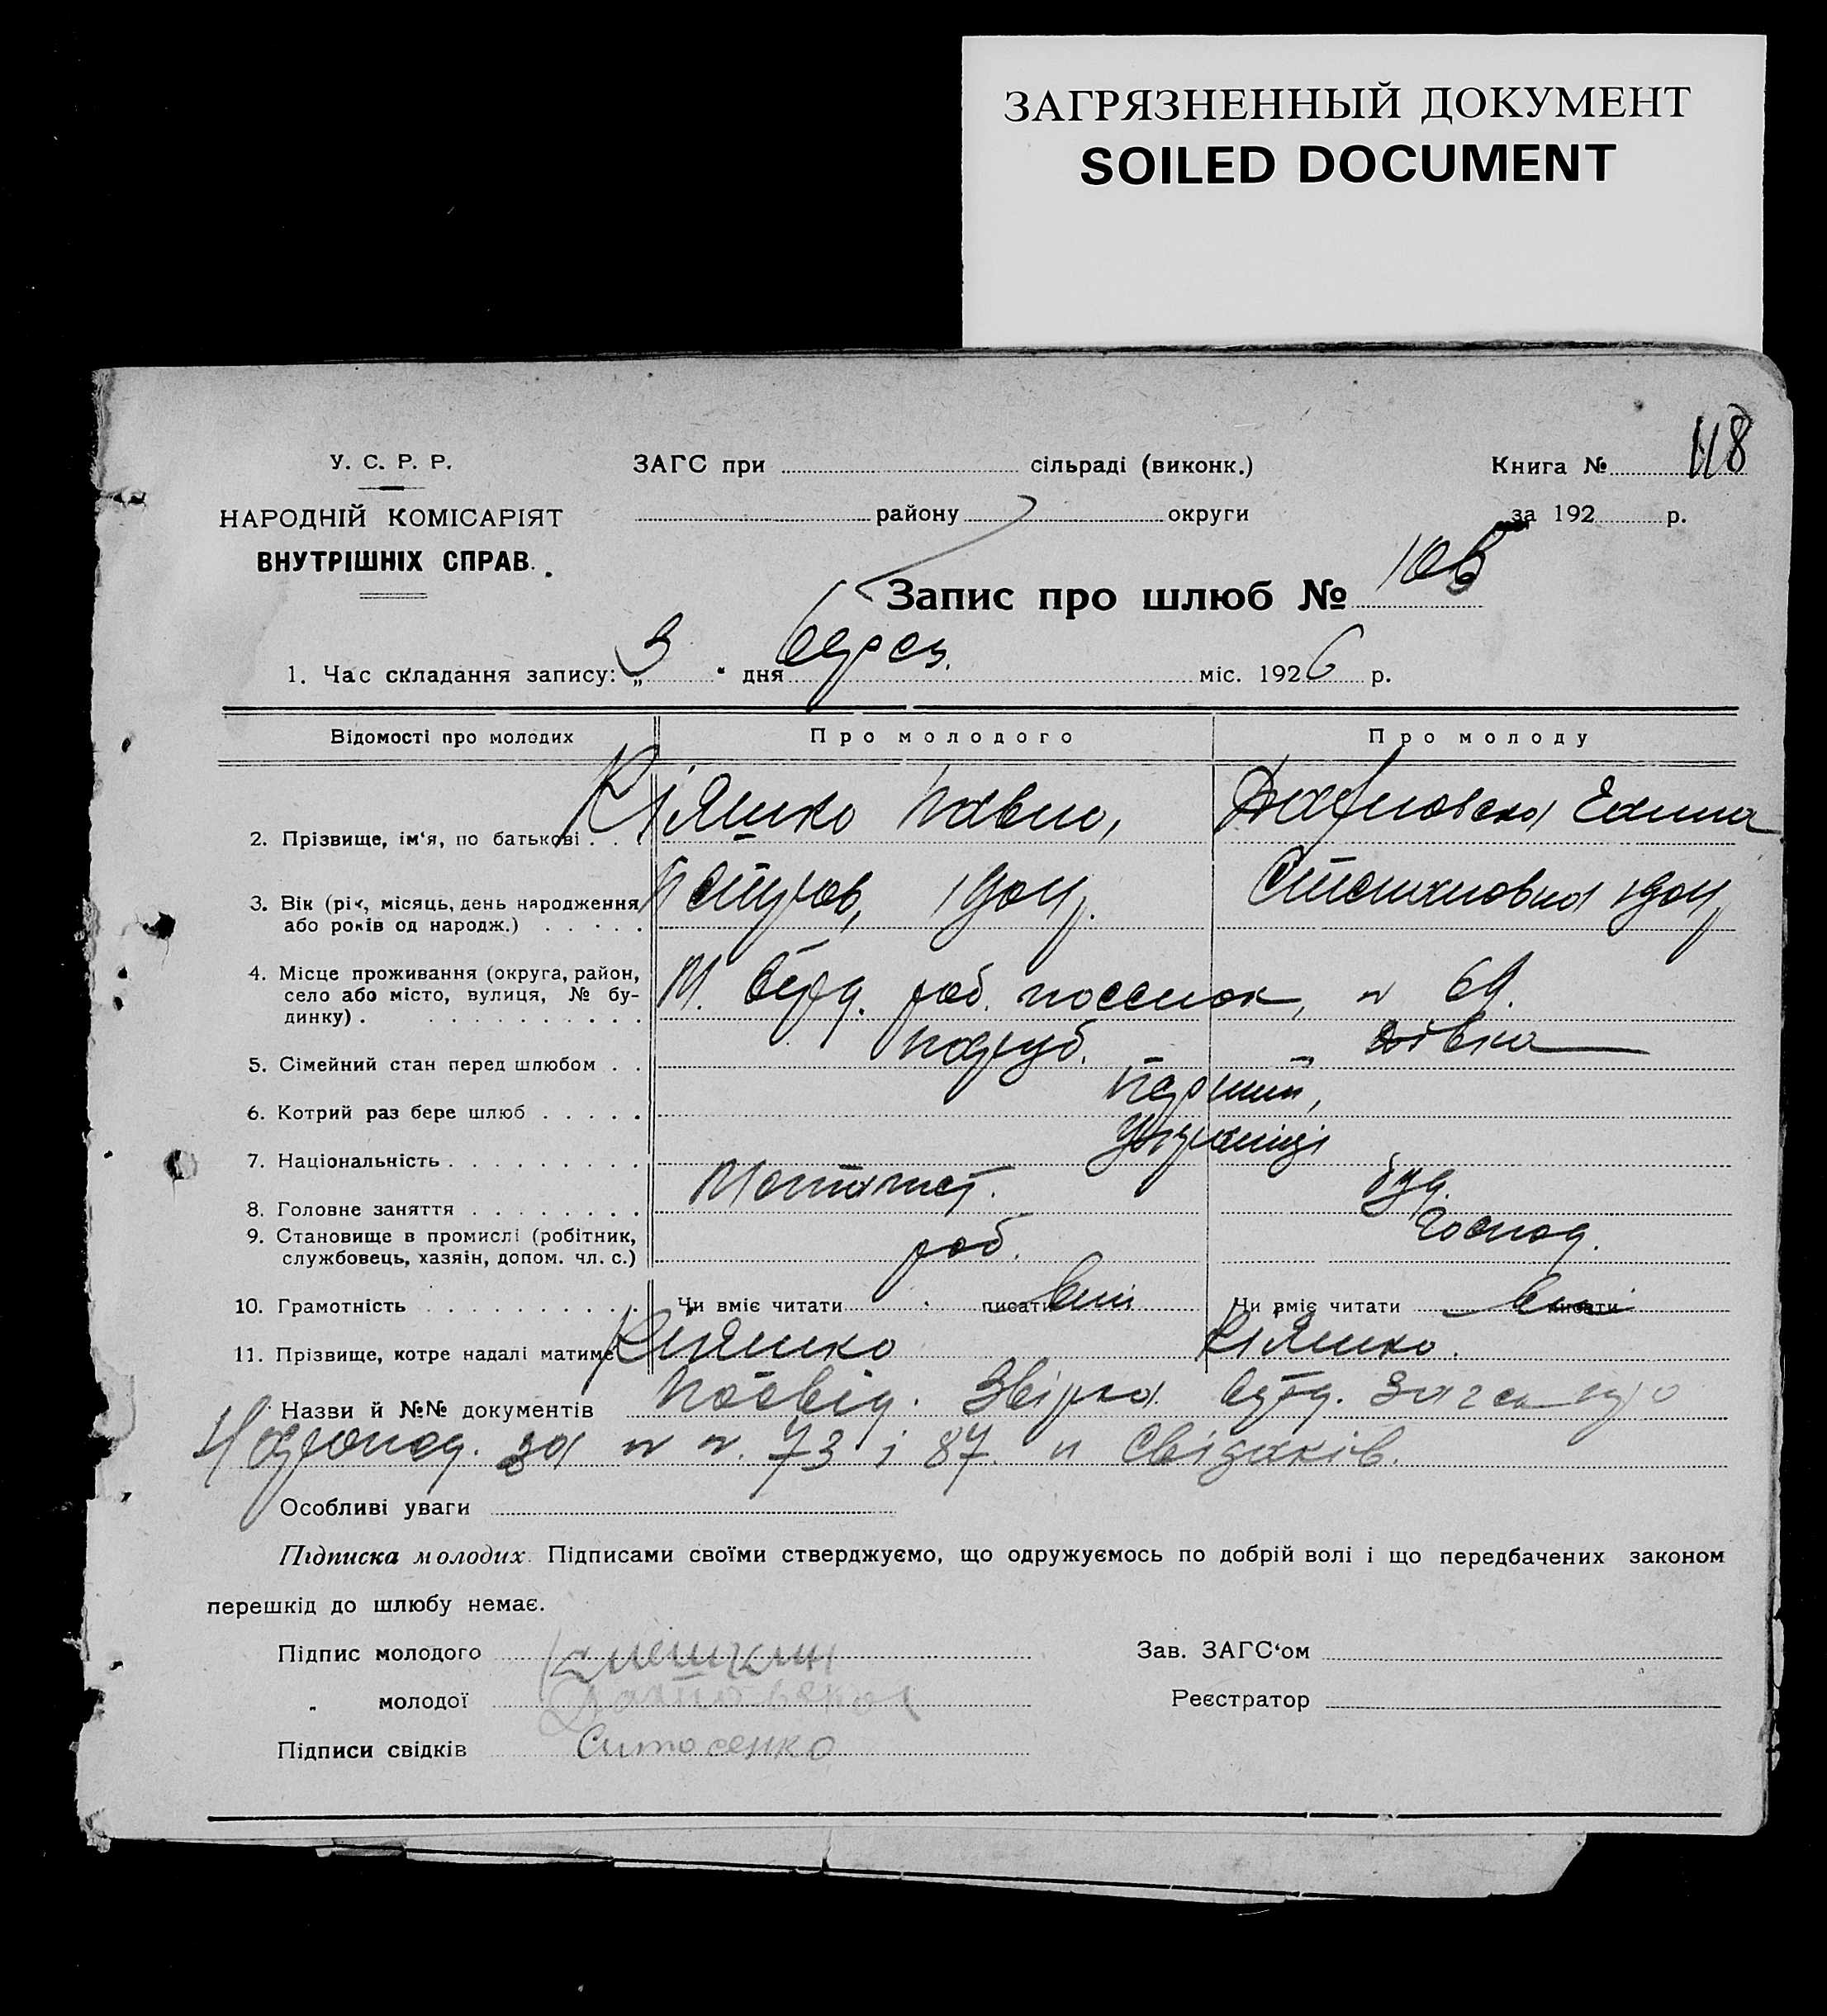 ЗАГРЯЗНЕННЫЙ ДОКУМЕНТ
SOILED DOCUMENT
118
У. С. Р. Р. ЗАГС при сільраді (виконк.) Книга №
НАРОДНІЙ КОМІСАРІЯТ району округи за 192 р.
ВНУТРІШНІХ СПРАВ.
Запис про шлюб №
1. Час складання запису: „ 3 “ дня берез. міс. 1926 р.
Відомості про молодих Про молодого Про молоду
2. Прізвище, ім'я, по батькові Кіяшко Павло,
3. Вік (рік, місяць, день народження або років од народж.) Петров, 1904 р. Степановна 1904
4. Місце проживання (округа, район, село або місто, вулиця, № будинку) М. Берд. роб. поселок, № 69.
5. Сімейний стан перед шлюбом паруб. дівка
6. Котрий раз бере шлюб перший,
7. Національність українці
8. Головне заняття
9. Становище в промислі (робітник, службовець, хазяін, допом. чл. с.) роб. господ.
10. Грамотність Чи вміє читати писати вмі Чи вміє читати писати вмі
11. Прізвище, котре надалі матиме Кіяшко Кіяшко.
Назви й №№ документів Посвід.
за № №. 73 і 87. и свідаків.
Особливі уваги
Підписка молодих. Підписами своїми стверджуємо, що одружуємось по добрій волі і що передбачених законом
перешкід до шлюбу немає.
Підпис молодого Зав. ЗАГС'ом
„ молодої Реєстратор
Підписи свідків